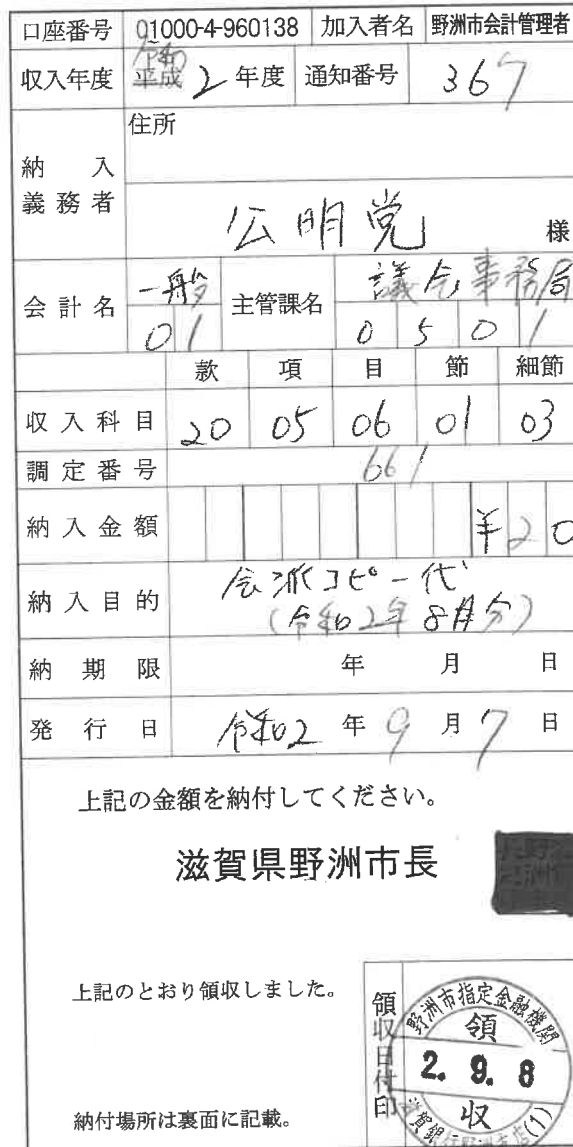 口座番号 01000-4-960138 加入者名 野洲市会計管理者
令和
収入年度 平成 2 年度 通知番号 367
住所
納入義務者
公明党 様
会計名 一般 主管課名 議会事務局
01 0501
款 項 目 節 細節
収入科目 20 05 06 01 03
調定番号 661
納入金額 ¥20
納入目的 会派コピー代
(令和2年8月分)
納期限 年 月 日
発行日 令和2 年 9 月 7 日
上記の金額を納付してください。
滋賀県野洲市長
上記のとおり領収しました。
領収日付印
野洲市指定金融機関
領
2. 9. 8
収
納付場所は裏面に記載。